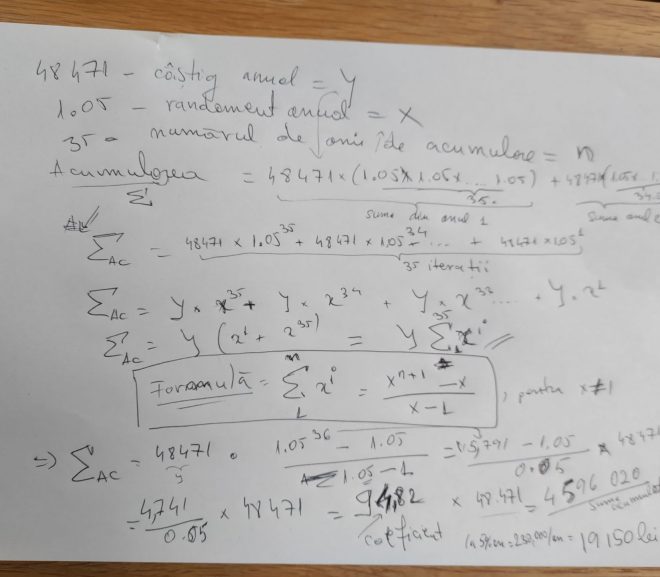 48471 - câștig anual = Y
1.05 - randament anual = X
35 - numărul de ani de acumulare = n
Acumularea Σ = 48471 × (1.05 × 1.05 × ... 1.05) + 48471 (1.05 × 1.
35. 34.
suma din anul 1 suma anul
Σ AC = 48471 × 1.05^35 + 48471 × 1.05^34 ... + 48471 × 1.05^1
35 iterații
Σ AC = Y × x^35 + Y × x^34 + Y × x^33 ... + Y × x^1
Σ AC = Y (x^1 + x^35) = Y Σ_1^35 x^i
Formulă = Σ_1^n x^i = (x^(n+1) - x) / (x - 1), pentru x ≠ 1
=> Σ AC = 48471 · (1.05^36 - 1.05) / (1.05 - 1) = (5,791 - 1.05) / 0.05 × 48471
y
= 4,741 / 0.05 × 48471 = 94,82 × 48.471 = 4 596 020
coeficient suma acumulată
la 5%/an = 230,000/an = 19150 lei